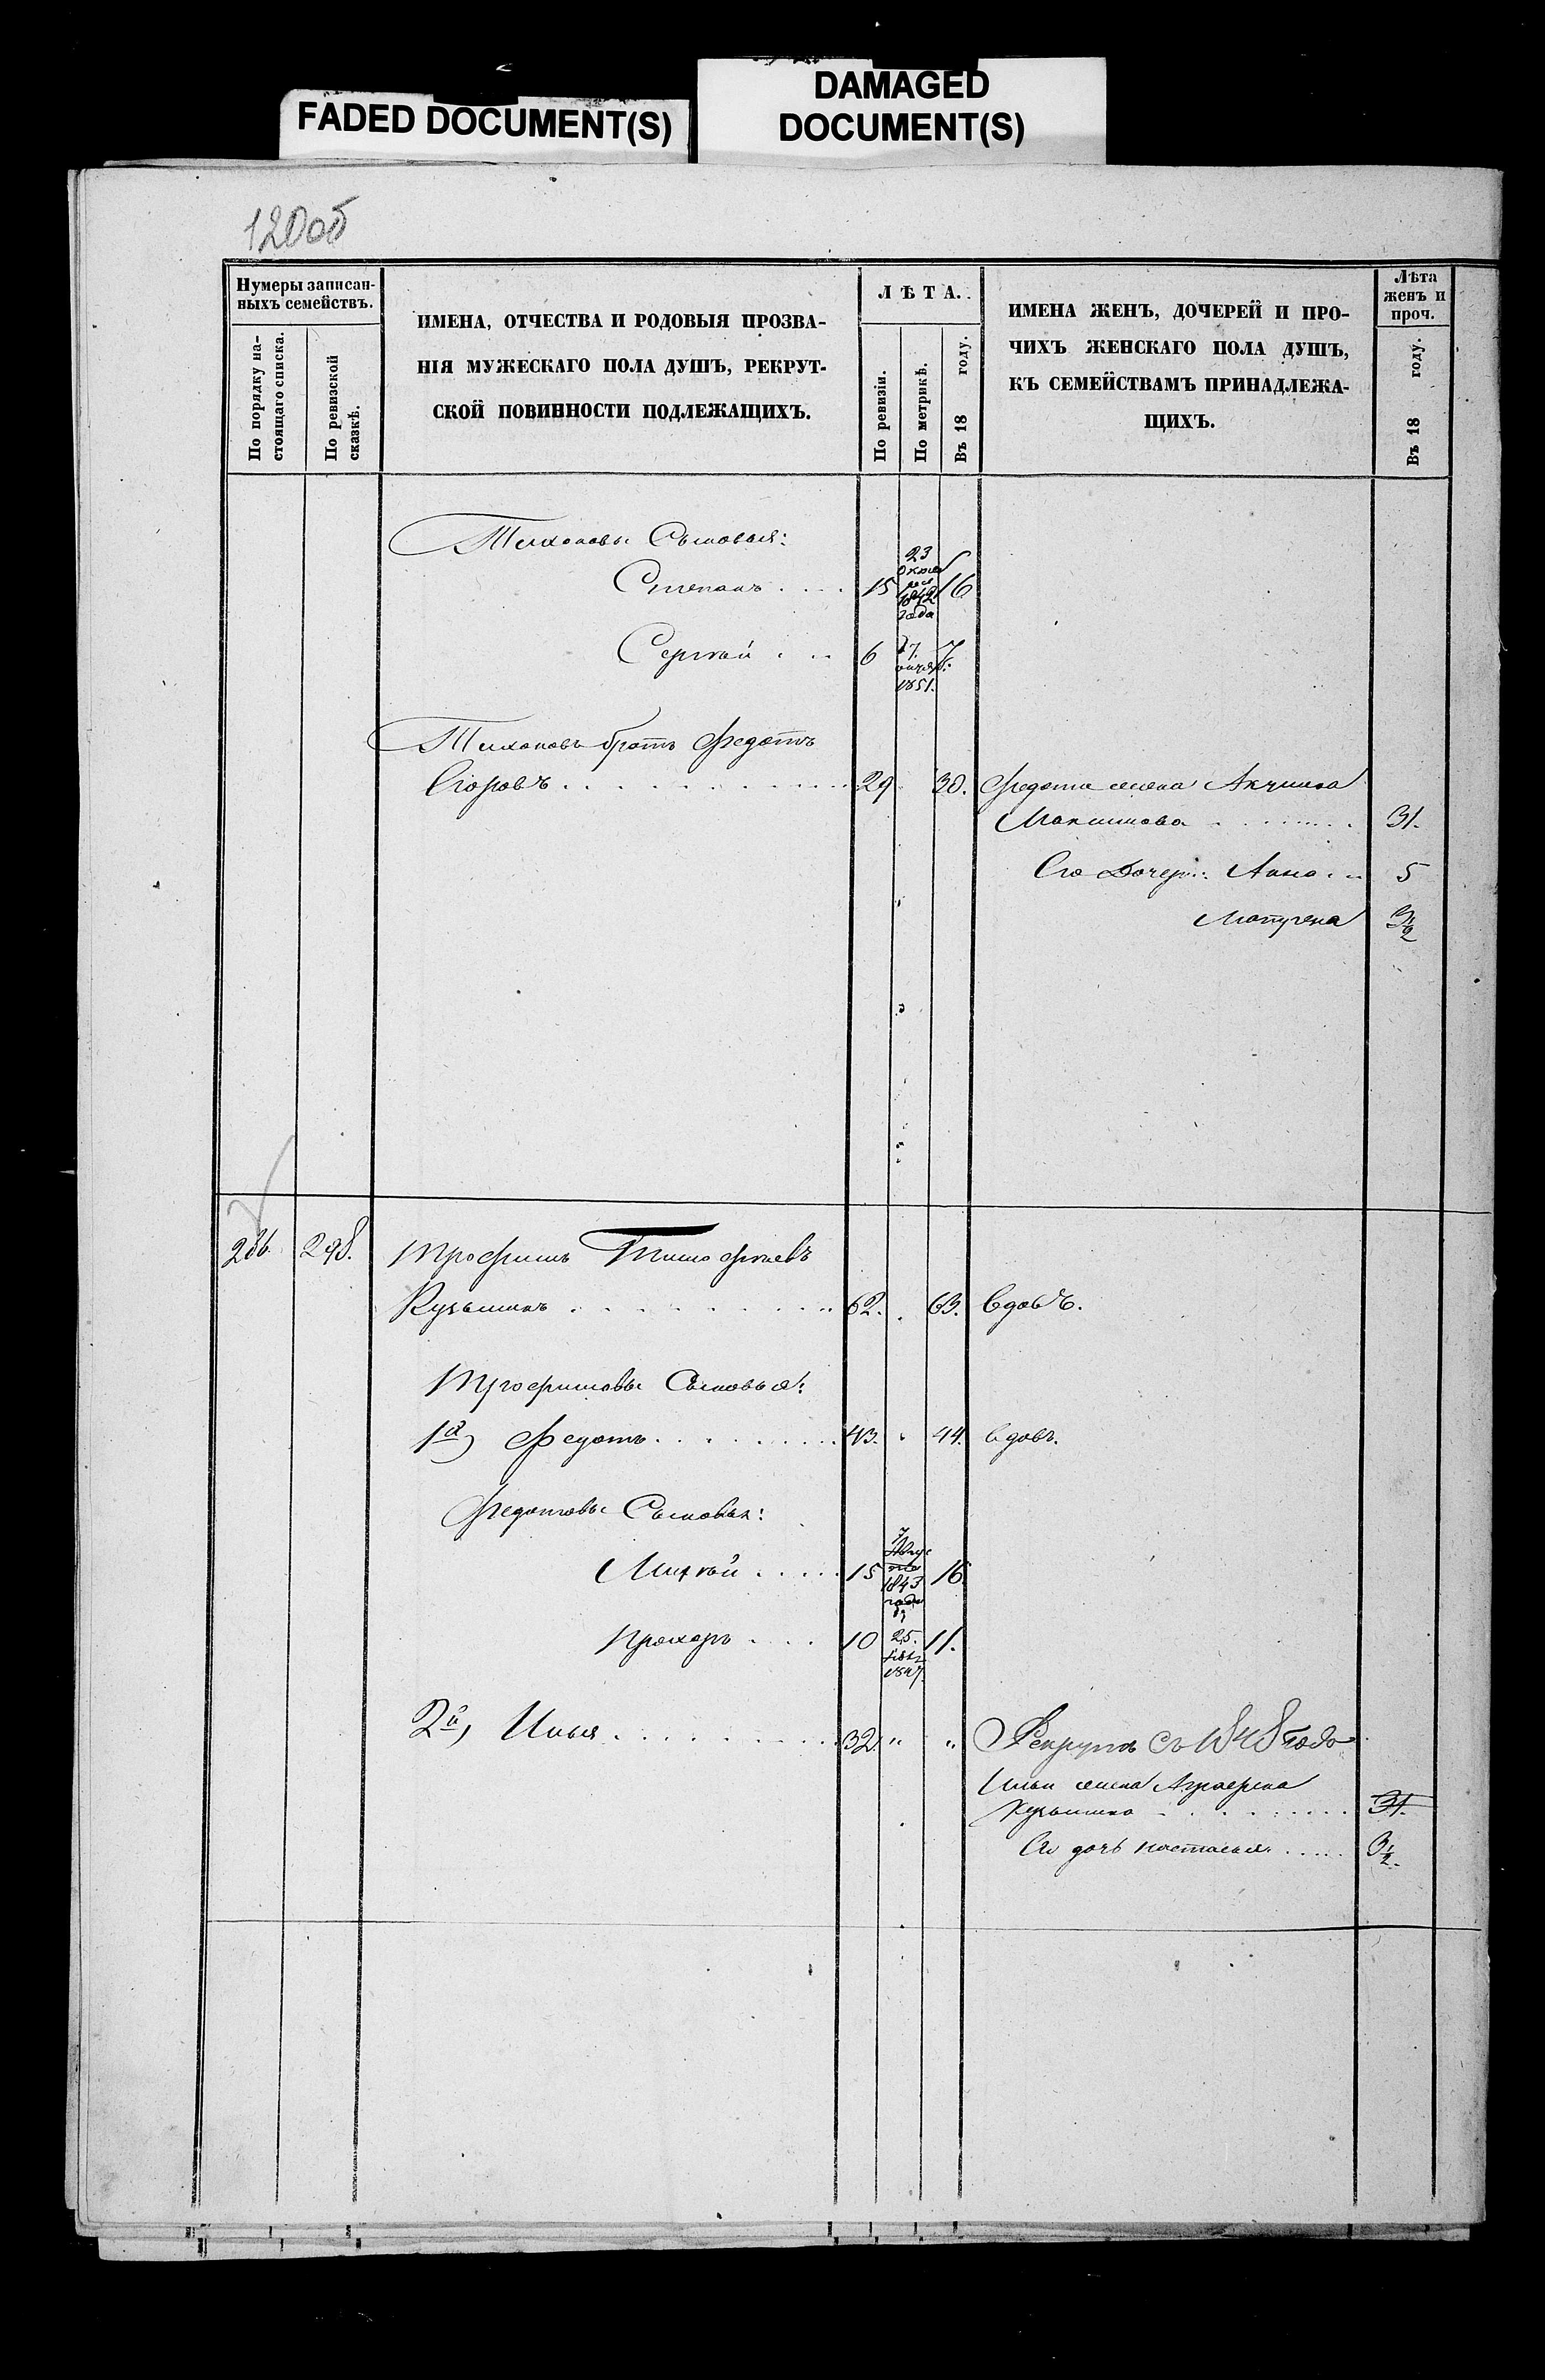 FADED DOCUMENT(S)
DAMAGED
DOCUMENT(S)
120об
Нумеры записан-
ныхъ семействъ.
По порядку на-
стоящаго списка.
По ревизской
сказкѣ.
ИМЕНА, ОТЧЕСТВА И РОДОВЫЯ ПРОЗВА-
НІЯ МУЖЕСКАГО ПОЛА ДУШЪ, РЕКРУТ-
СКОЙ ПОВИННОСТИ ПОДЛЕЖАЩИХЪ.
ЛѢТА.
По ревизіи.
По метрикѣ.
Въ 18 году.
ИМЕНА ЖЕНЪ, ДОЧЕРЕЙ И ПРО-
ЧИХЪ ЖЕНСКАГО ПОЛА ДУШЪ,
КЪ СЕМЕЙСТВАМЪ ПРИНАДЛЕЖА-
ЩИХЪ.
Лѣта
женъ и
проч.
Въ 18 году.
Тихоновы Сыновья:
Степанъ 15 23 1842 года 16
Сергѣй 6 7
1851.
Тихоновъ братъ Федотъ
Егоровъ 29 30. Федота жена Акулина
Максимова 31.
Его Дочери: Анна 5
Матрена 3½
286 298. Трофимъ Тимофѣевъ
Кузьминъ 62. 63. вдовъ.
Трофимовы Сыновья:
1й, Федотъ 43. 44. вдовъ.
Федотовы Сыновья:
Михѣй 15 7 1843 года 16
Прохоръ 10 25. 1847. 11.
2й, Илья 32 " " Рекрутъ съ 1848 года
Ильи жена Аграфена
Кузьмина 31.
Его дочь Настасья 3½.